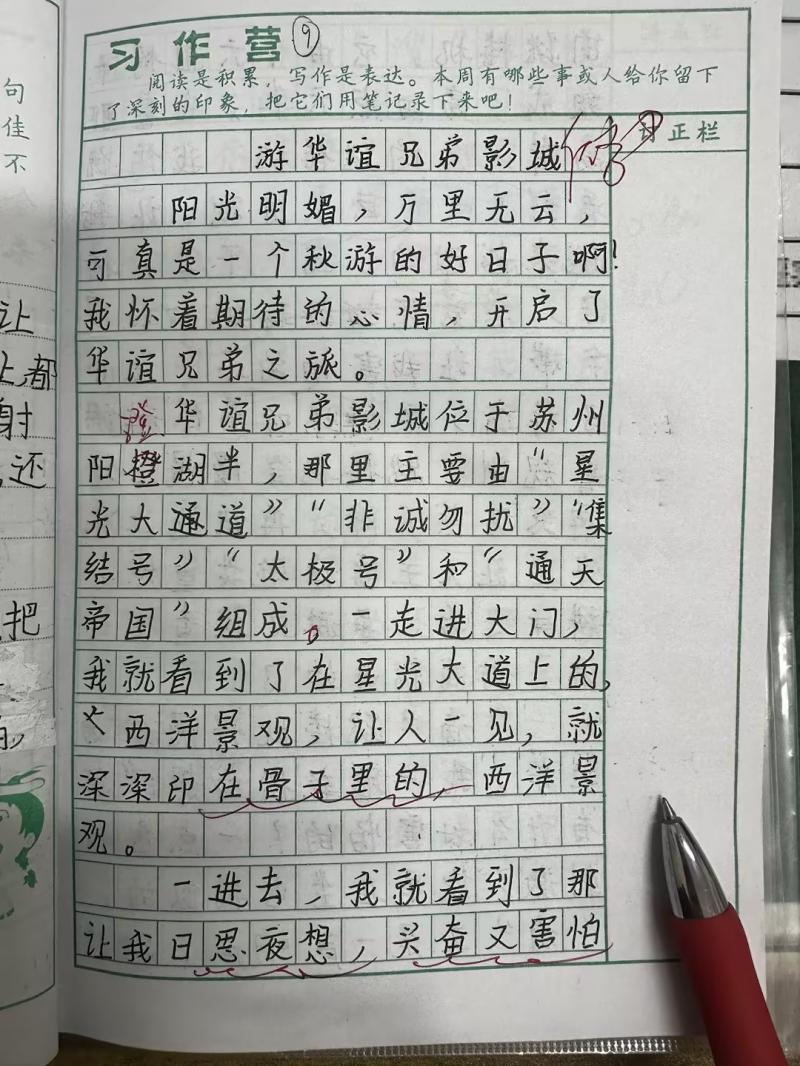 习作营 ⑨
阅读是积累，写作是表达。本周有哪些事或人给你留下
了深刻的印象，把它们用笔记录下来吧！
订正栏
游华谊兄弟影城
阳光明媚，万里无云，
可真是一个秋游的好日子啊！
我怀着期待的心情，开启了
华谊兄弟之旅。
华谊兄弟影城位于苏州
阳橙湖半，那里主要由“星
光大通道”“非诚勿扰”“集
结号”“太极号”和“通天
帝国”组成。一走进大门，
我就看到了在星光大道上的，
西洋景观，让人一见，就
深深印在骨子里的，西洋景
观。
一进去，我就看到了那
让我日思夜想，兴奋又害怕
句
佳
不
让
上,都
射
还
把